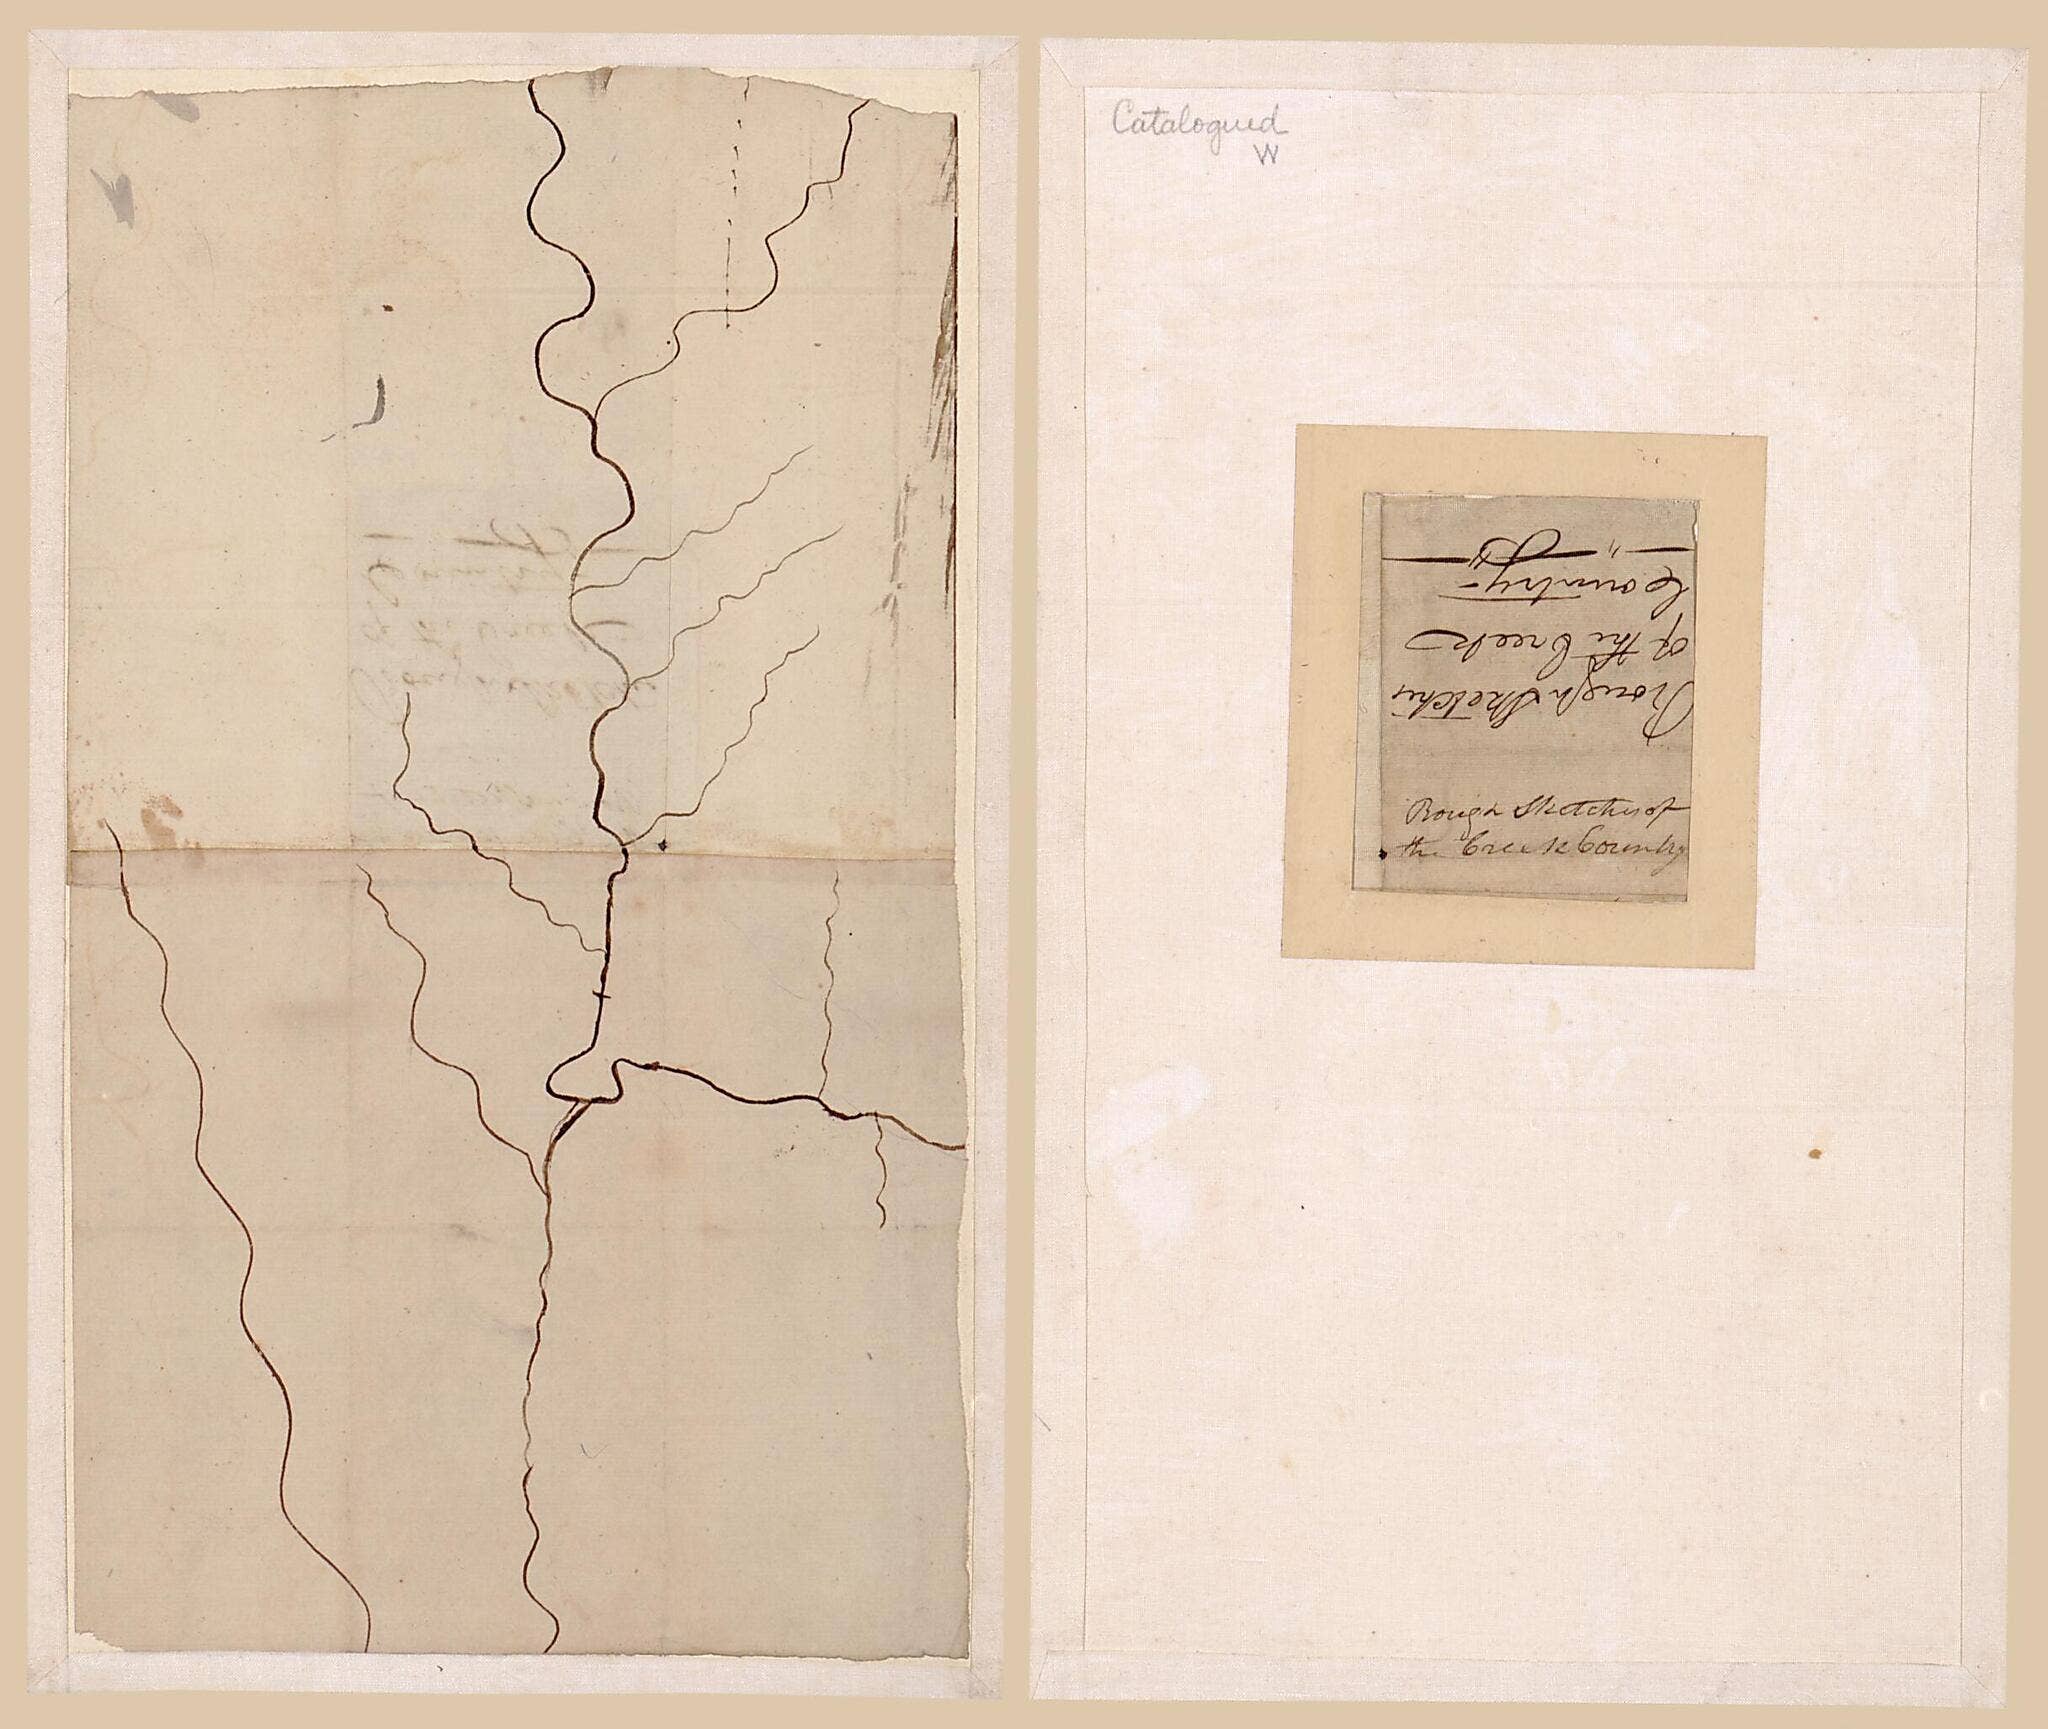 Catalogued
W
Rough Sketches
of the Creek
Country -
Rough Sketches of
the Creek Country